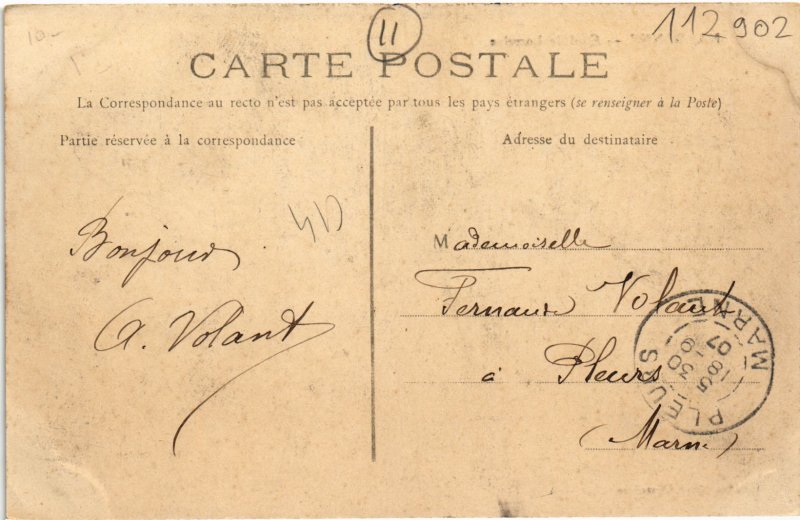 11
112902
CARTE POSTALE
La Correspondance au recto n'est pas acceptée par tous les pays étrangers (se renseigner à la Poste)
Partie réservée à la correspondance
Adresse du destinataire
Bonjour
A. Volant
Mademoiselle
Fernande Volant
à Pleurs
(Marne)
PLEURS
MARNE